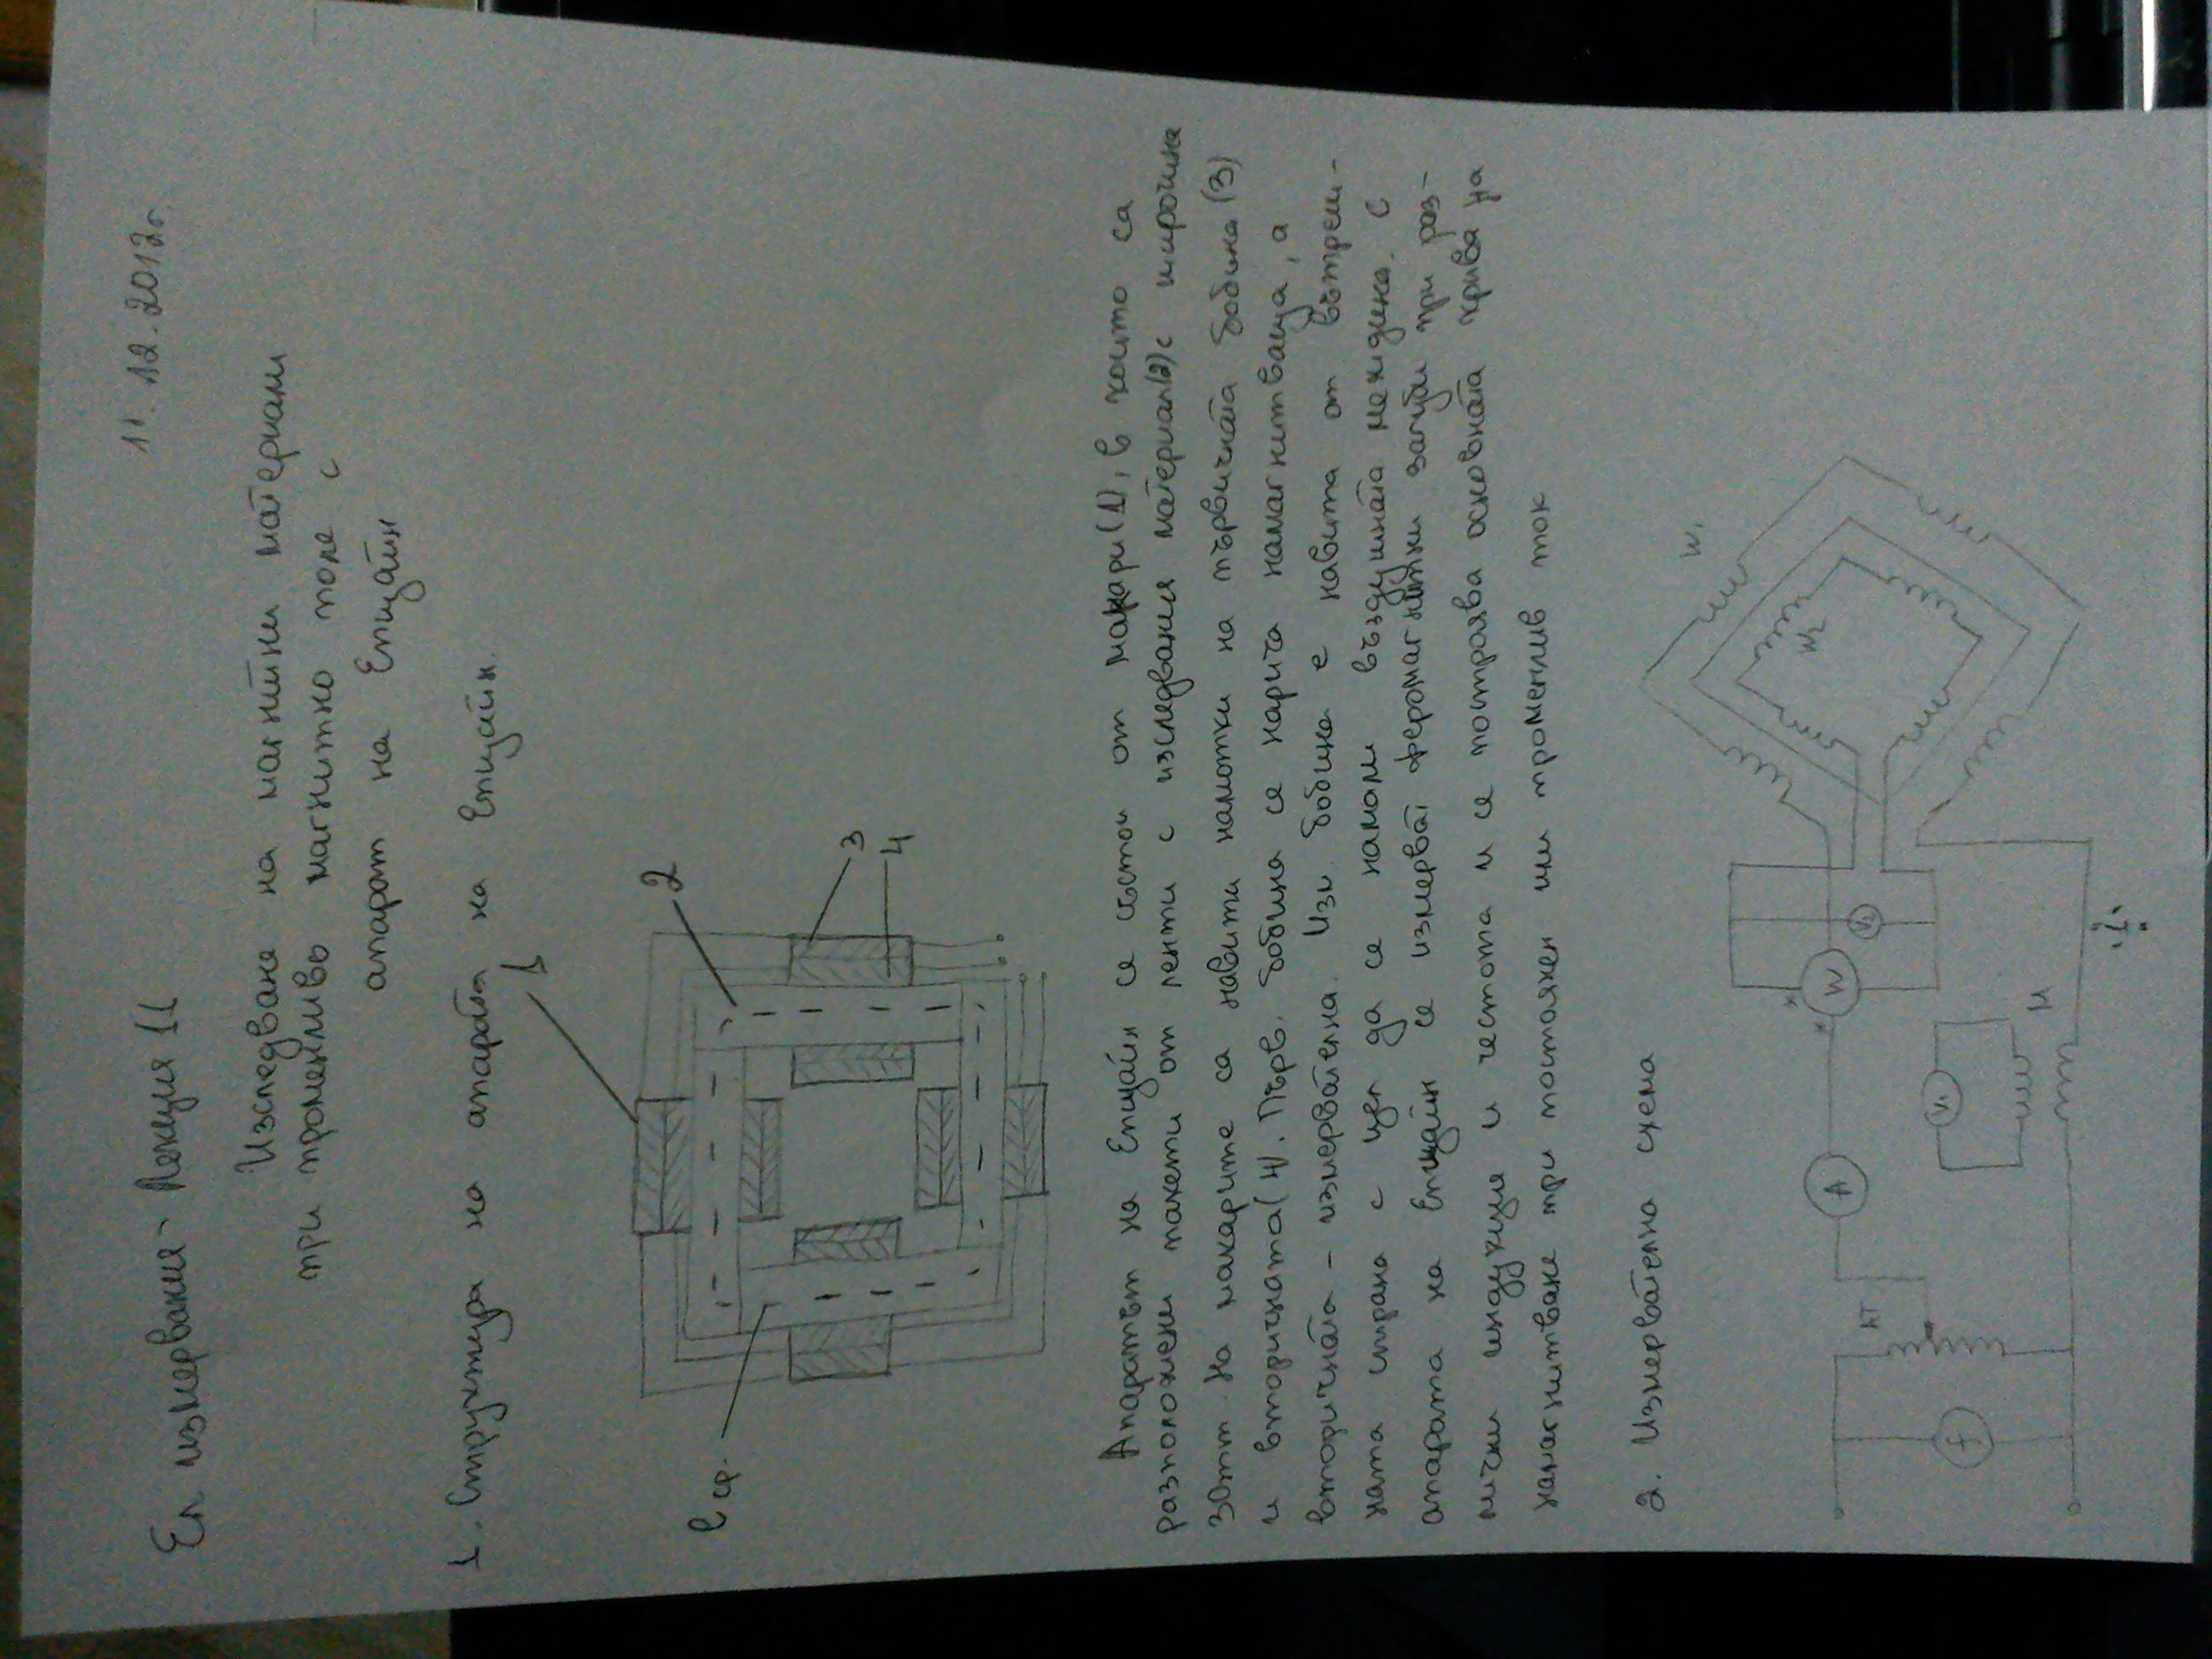 11.12.2012г.
Ел. измервания - Лекция 11
Изследване на магнитни материали
при променливо магнитно поле с
апарат на Епщайн
1. Структура на апарат на Епщайн.
1
2
3
4
lср.
Апаратът на Епщайн се състои от макари(1), в които са
разположени пакети от ленти с изследвания материал(2) с широчина
30mm. На макарите са навити намотки на първичната бобина (3)
и вторичната(4). Първ. бобина се нарича намагнитваща, а
вторичната - измервателна. Изм. бобина е навита от вътреш-
ната страна с цел да се намали въздушната междина. С
апарата на Епщайн се измерват феромагнитни загуби при раз-
лични индукция и честота и се построява основната крива на
намагнитване при постоянен или променлив ток
2. Измервателна схема
W1
W2
AT
A
W
V2
V1
M
f
i1